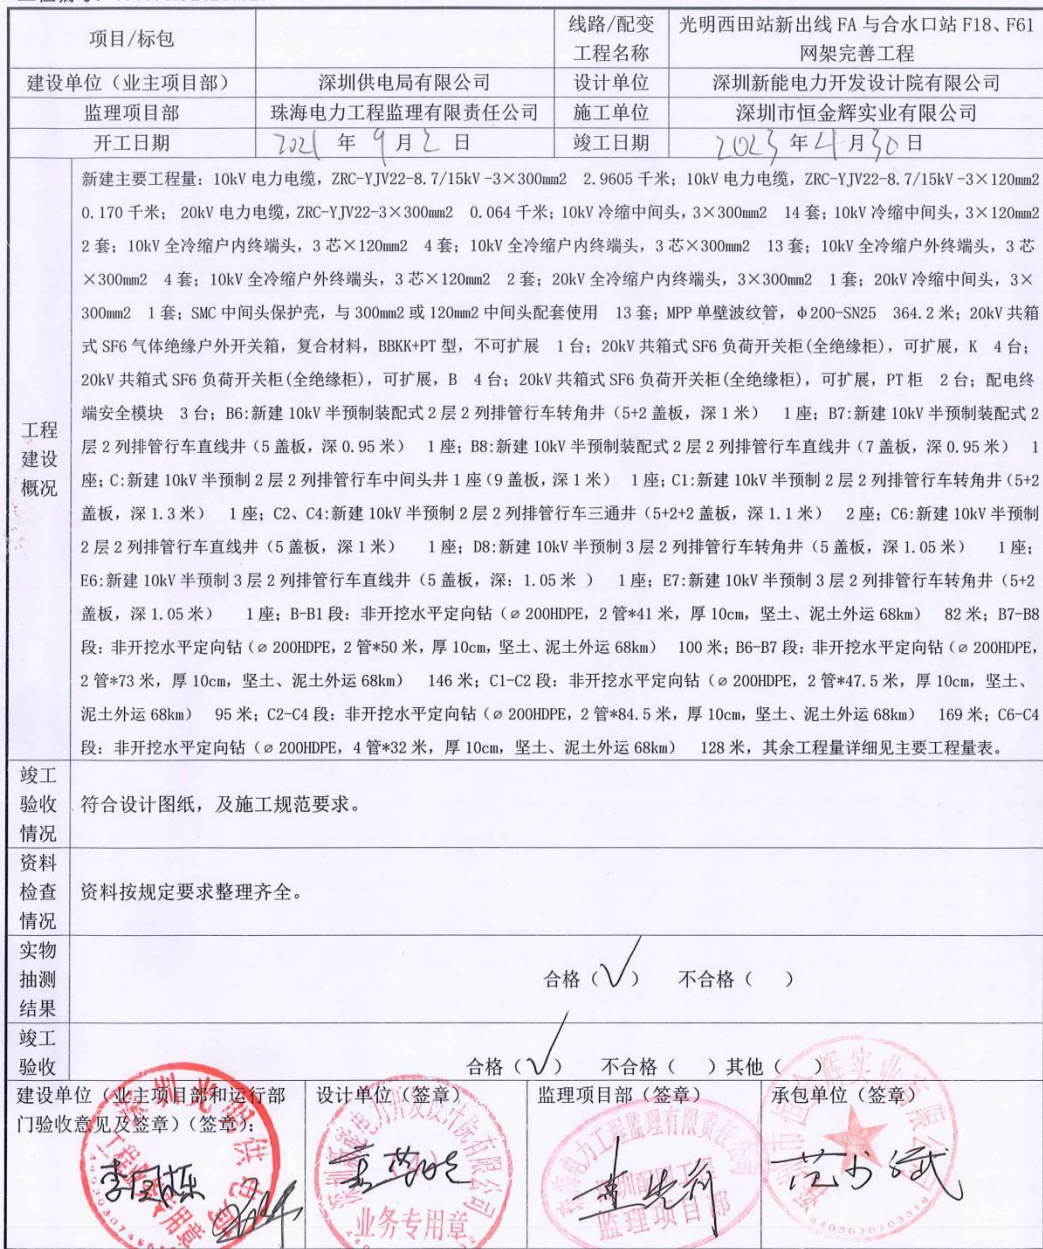 项目/标包
线路/配变工程名称
光明西田站新出线 FA 与合水口站 F18、F61
网架完善工程
建设单位（业主项目部）
深圳供电局有限公司
设计单位
深圳新能电力开发设计院有限公司
监理项目部
珠海电力工程监理有限责任公司
施工单位
深圳市恒金辉实业有限公司
开工日期
2021 年 9 月 2 日
竣工日期
2023 年 4 月 30 日
工程
建设
概况
新建主要工程量：10kV 电力电缆，ZRC-YJV22-8.7/15kV-3×300mm2 2.9605 千米；10kV 电力电缆，ZRC-YJV22-8.7/15kV-3×120mm2
0.170 千米； 20kV 电力电缆，ZRC-YJV22-3×300mm2 0.064 千米；10kV 冷缩中间头，3×300mm2 14 套；10kV 冷缩中间头，3×120mm2
2 套；10kV 全冷缩户内终端头，3 芯×120mm2 4 套；10kV 全冷缩户内终端头，3 芯×300mm2 13 套；10kV 全冷缩户外终端头，3 芯
×300mm2 4 套；10kV 全冷缩户外终端头，3 芯×120mm2 2 套；20kV 全冷缩户内终端头，3×300mm2 1 套；20kV 冷缩中间头，3×
300mm2 1 套；SMC 中间头保护壳，与 300mm2 或 120mm2 中间头配套使用 13 套；MPP 单壁波纹管，φ200-SN25 364.2 米；20kV 共箱
式 SF6 气体绝缘户外开关箱，复合材料，BBKK+PT 型，不可扩展 1 台；20kV 共箱式 SF6 负荷开关柜(全绝缘柜)，可扩展，K 4 台；
20kV 共箱式 SF6 负荷开关柜(全绝缘柜)，可扩展，B 4 台；20kV 共箱式 SF6 负荷开关柜(全绝缘柜)，可扩展，PT 柜 2 台；配电终
端安全模块 3 台；B6:新建 10kV 半预制装配式 2 层 2 列排管行车转角井（5+2 盖板，深 1 米） 1 座；B7:新建 10kV 半预制装配式 2
层 2 列排管行车直线井（5 盖板，深 0.95 米） 1 座；B8:新建 10kV 半预制装配式 2 层 2 列排管行车直线井（7 盖板，深 0.95 米） 1
座；C:新建 10kV 半预制 2 层 2 列排管行车中间头井 1 座（9 盖板，深 1 米） 1 座；C1:新建 10kV 半预制 2 层 2 列排管行车转角井（5+2
盖板，深 1.3 米） 1 座；C2、C4:新建 10kV 半预制 2 层 2 列排管行车三通井（5+2+2 盖板，深 1.1 米） 2 座；C6:新建 10kV 半预制
2 层 2 列排管行车直线井（5 盖板，深 1 米） 1 座；D8:新建 10kV 半预制 3 层 2 列排管行车转角井（5 盖板，深 1.05 米） 1 座；
E6:新建 10kV 半预制 3 层 2 列排管行车直线井（5 盖板，深：1.05 米 ） 1 座；E7:新建 10kV 半预制 3 层 2 列排管行车转角井（5+2
盖板，深 1.05 米） 1 座；B-B1 段：非开挖水平定向钻（⌀ 200HDPE，2 管*41 米，厚 10cm，坚土、泥土外运 68km） 82 米；B7-B8
段：非开挖水平定向钻（⌀ 200HDPE，2 管*50 米，厚 10cm，坚土、泥土外运 68km） 100 米；B6-B7 段：非开挖水平定向钻（⌀ 200HDPE，
2 管*73 米，厚 10cm，坚土、泥土外运 68km） 146 米；C1-C2 段：非开挖水平定向钻（⌀ 200HDPE，2 管*47.5 米，厚 10cm，坚土、
泥土外运 68km） 95 米；C2-C4 段：非开挖水平定向钻（⌀ 200HDPE，2 管*84.5 米，厚 10cm，坚土、泥土外运 68km） 169 米；C6-C4
段：非开挖水平定向钻（⌀ 200HDPE，4 管*32 米，厚 10cm，坚土、泥土外运 68km） 128 米，其余工程量详细见主要工程量表。
竣工
验收
情况
符合设计图纸，及施工规范要求。
资料
检查
情况
资料按规定要求整理齐全。
实物
抽测
结果
合格（√） 不合格（ ）
竣工
验收
合格（√） 不合格（ ）其他（ ）
建设单位（业主项目部和运行部
门验收意见及签章）(签章)：
设计单位（签章）
业务专用章
监理项目部（签章）
珠海电力工程监理有限责任公司
监理项目部
承包单位（签章）